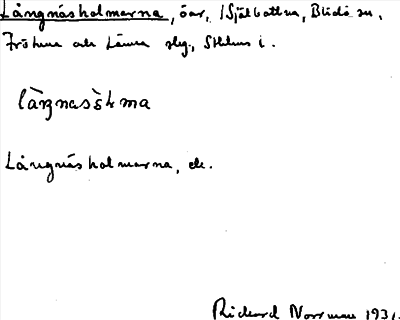 Långnäsholmarna, öar, i Själbottna, Blidö sn,
Fröhuna och Länna slg., Sthlms l.
Långnäsholmarna, ek.
Rickard Norrman 1931.